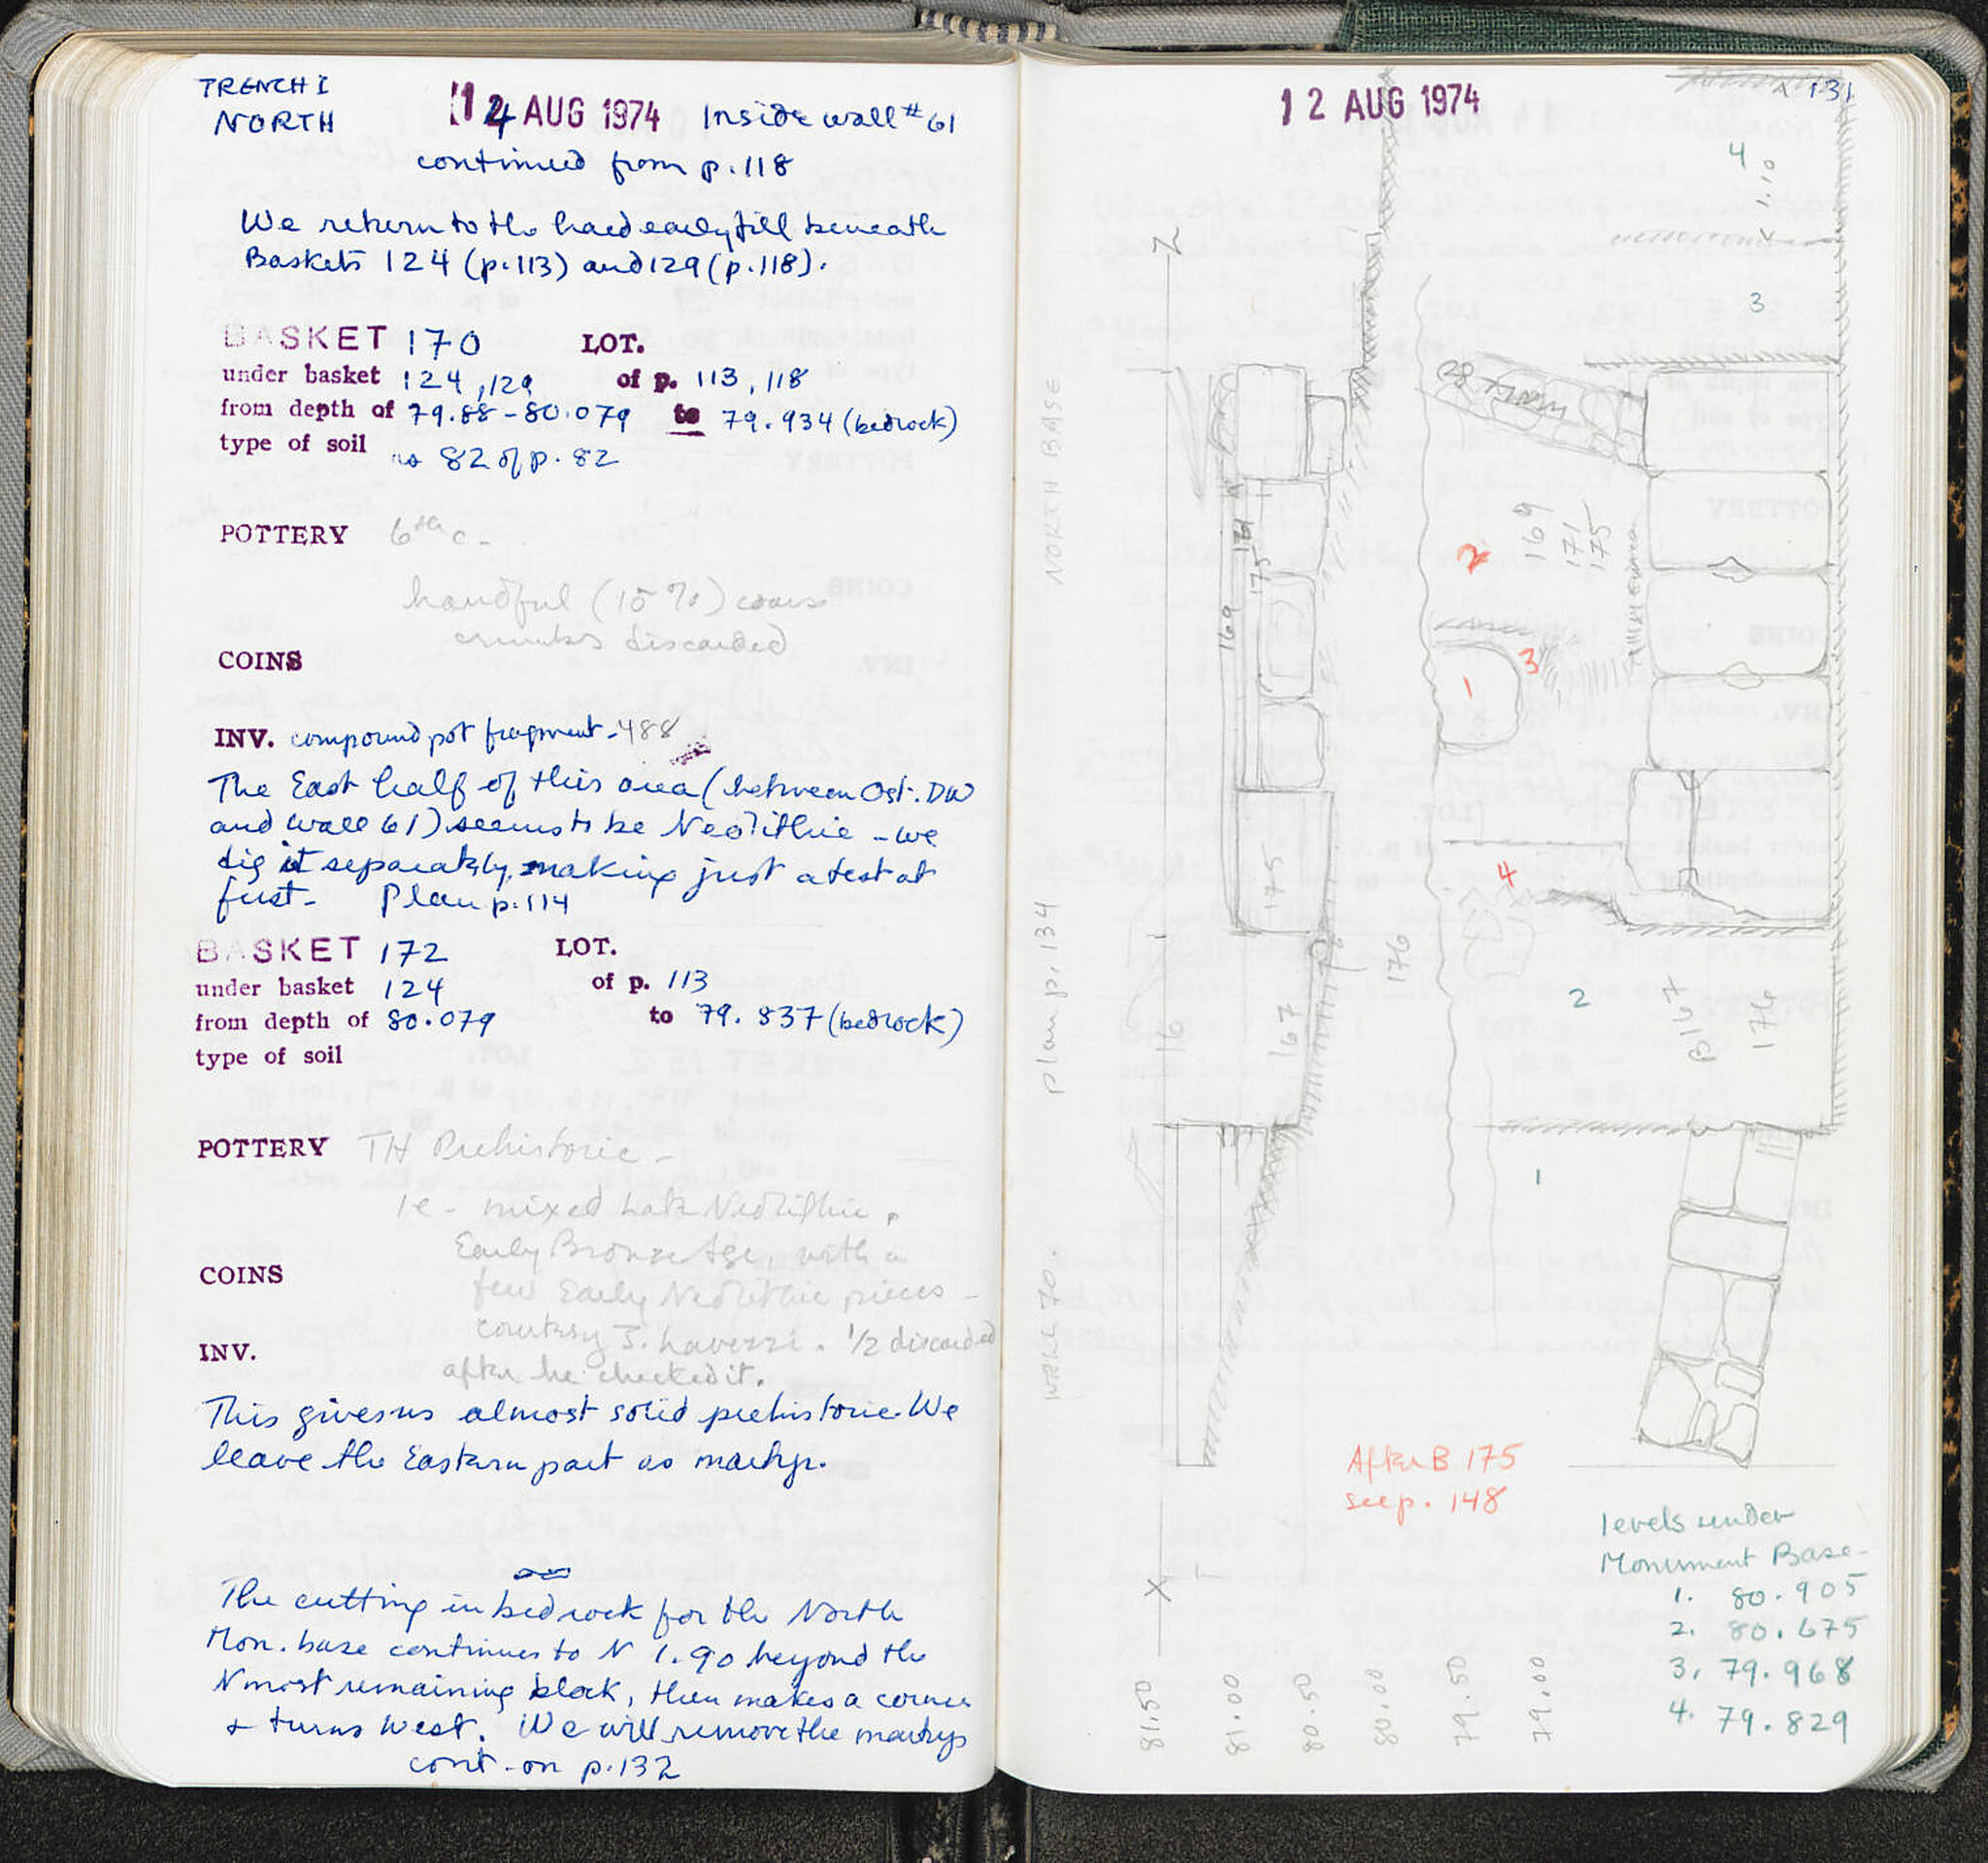 TRENCH I
NORTH
14 AUG 1974 Inside wall #61
continued from p.118
We return to the hard early fill beneath
Baskets 124 (p.113) and 129 (p.118).
BASKET 170 LOT.
under basket 124, 129 of p. 113, 118
from depth of 79.88-80.079 to 79.934 (bedrock)
type of soil as 82 of p. 82
POTTERY 6th c.
handful (15%) coarse
crumbs discarded
COINS
INV. compound pot fragment - 488
The East half of this area (between Ost. DW
and wall 61) seems to be Neolithic - we
dig it separately, making just a test at
first - Plan p.114
BASKET 172 LOT.
under basket 124 of p. 113
from depth of 80.079 to 79.837 (bedrock)
type of soil
POTTERY TH Prehistoric -
ie - mixed Late Neolithic,
Early Bronze Age, with a
few Early Neolithic pieces -
COINS
courtesy J. Lavezzi. 1/2 discarded
INV.
after he checked it.
This gives us almost solid prehistoric. We
leave the Eastern part as martyr.
The cutting in bedrock for the North
Mon. base continues to N 1.90 beyond the
Nmost remaining block, then makes a corner
+ turns West. We will remove the martyrs
cont - on p.132
12 AUG 1974
131
4
1.10
3
N
NORTH BASE
2
169
171
175
161
175
169
3
1
4
175
plan p. 134
176
2
B167
176
16
167
1
WALL 70.
After B 175
see p. 148
levels under
Monument Base -
1. 80.905
2. 80.675
3. 79.968
4. 79.829
X
81.50
81.00
80.50
80.00
79.50
79.00